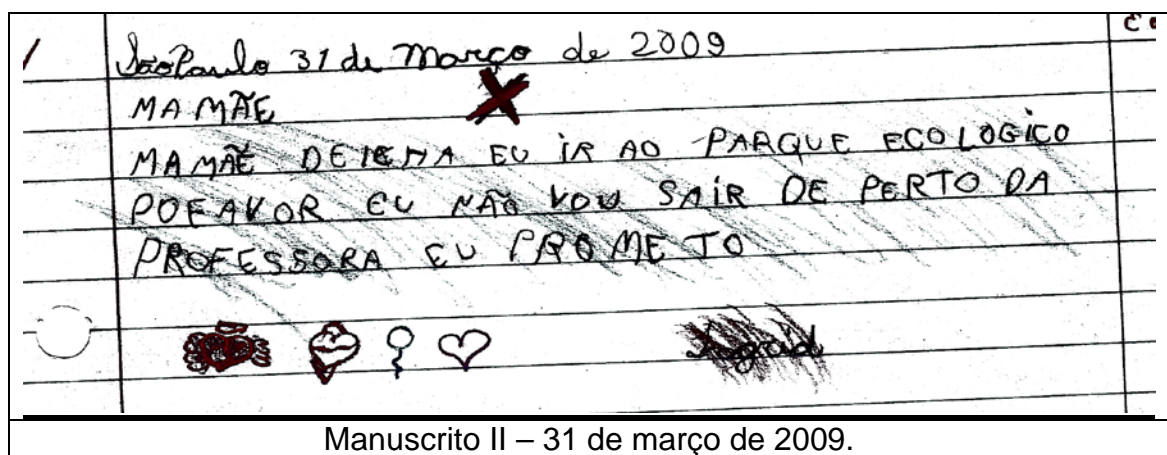 São Paulo 31 de Março de 2009
MAMÃE
MAMÃE DEICHA EU IR AO PARQUE ECOLOGICO
POFAVOR EU NÃO VOU SAIR DE PERTO DA
PROFESSORA EU PROMETO
Ingrid
Manuscrito II – 31 de março de 2009.